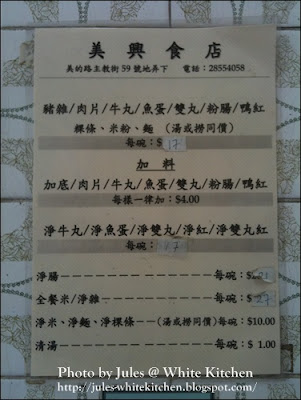 美興食店
美的路主教街59號地弄下 電話：28554058
豬雜/肉片/牛丸/魚蛋/雙丸/粉腸/鴨紅
粿條、米粉、麵 （湯或撈同價）
每碗：$17
加料
加底/肉片/牛丸/魚蛋/雙丸/粉腸/鴨紅
每樣一律加：$4.00
淨牛丸/淨魚蛋/淨雙丸/淨紅/淨雙丸
每碗：
淨腸－－－－－－－－－－－－每碗：
全餐米/淨雜－－－－－－－－每碗：$27
淨米、淨麵、淨粿條－－（湯或撈同價）每碗：$10.00
清湯－－－－－－－－－－－－每碗：$ 1.00
Photo by Jules @ White Kitchen
http://jules-whitekitchen.blogspot.com/